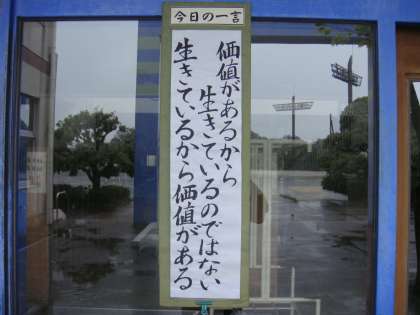 今日の一言
価値があるから
生きているのではない
生きているから価値がある